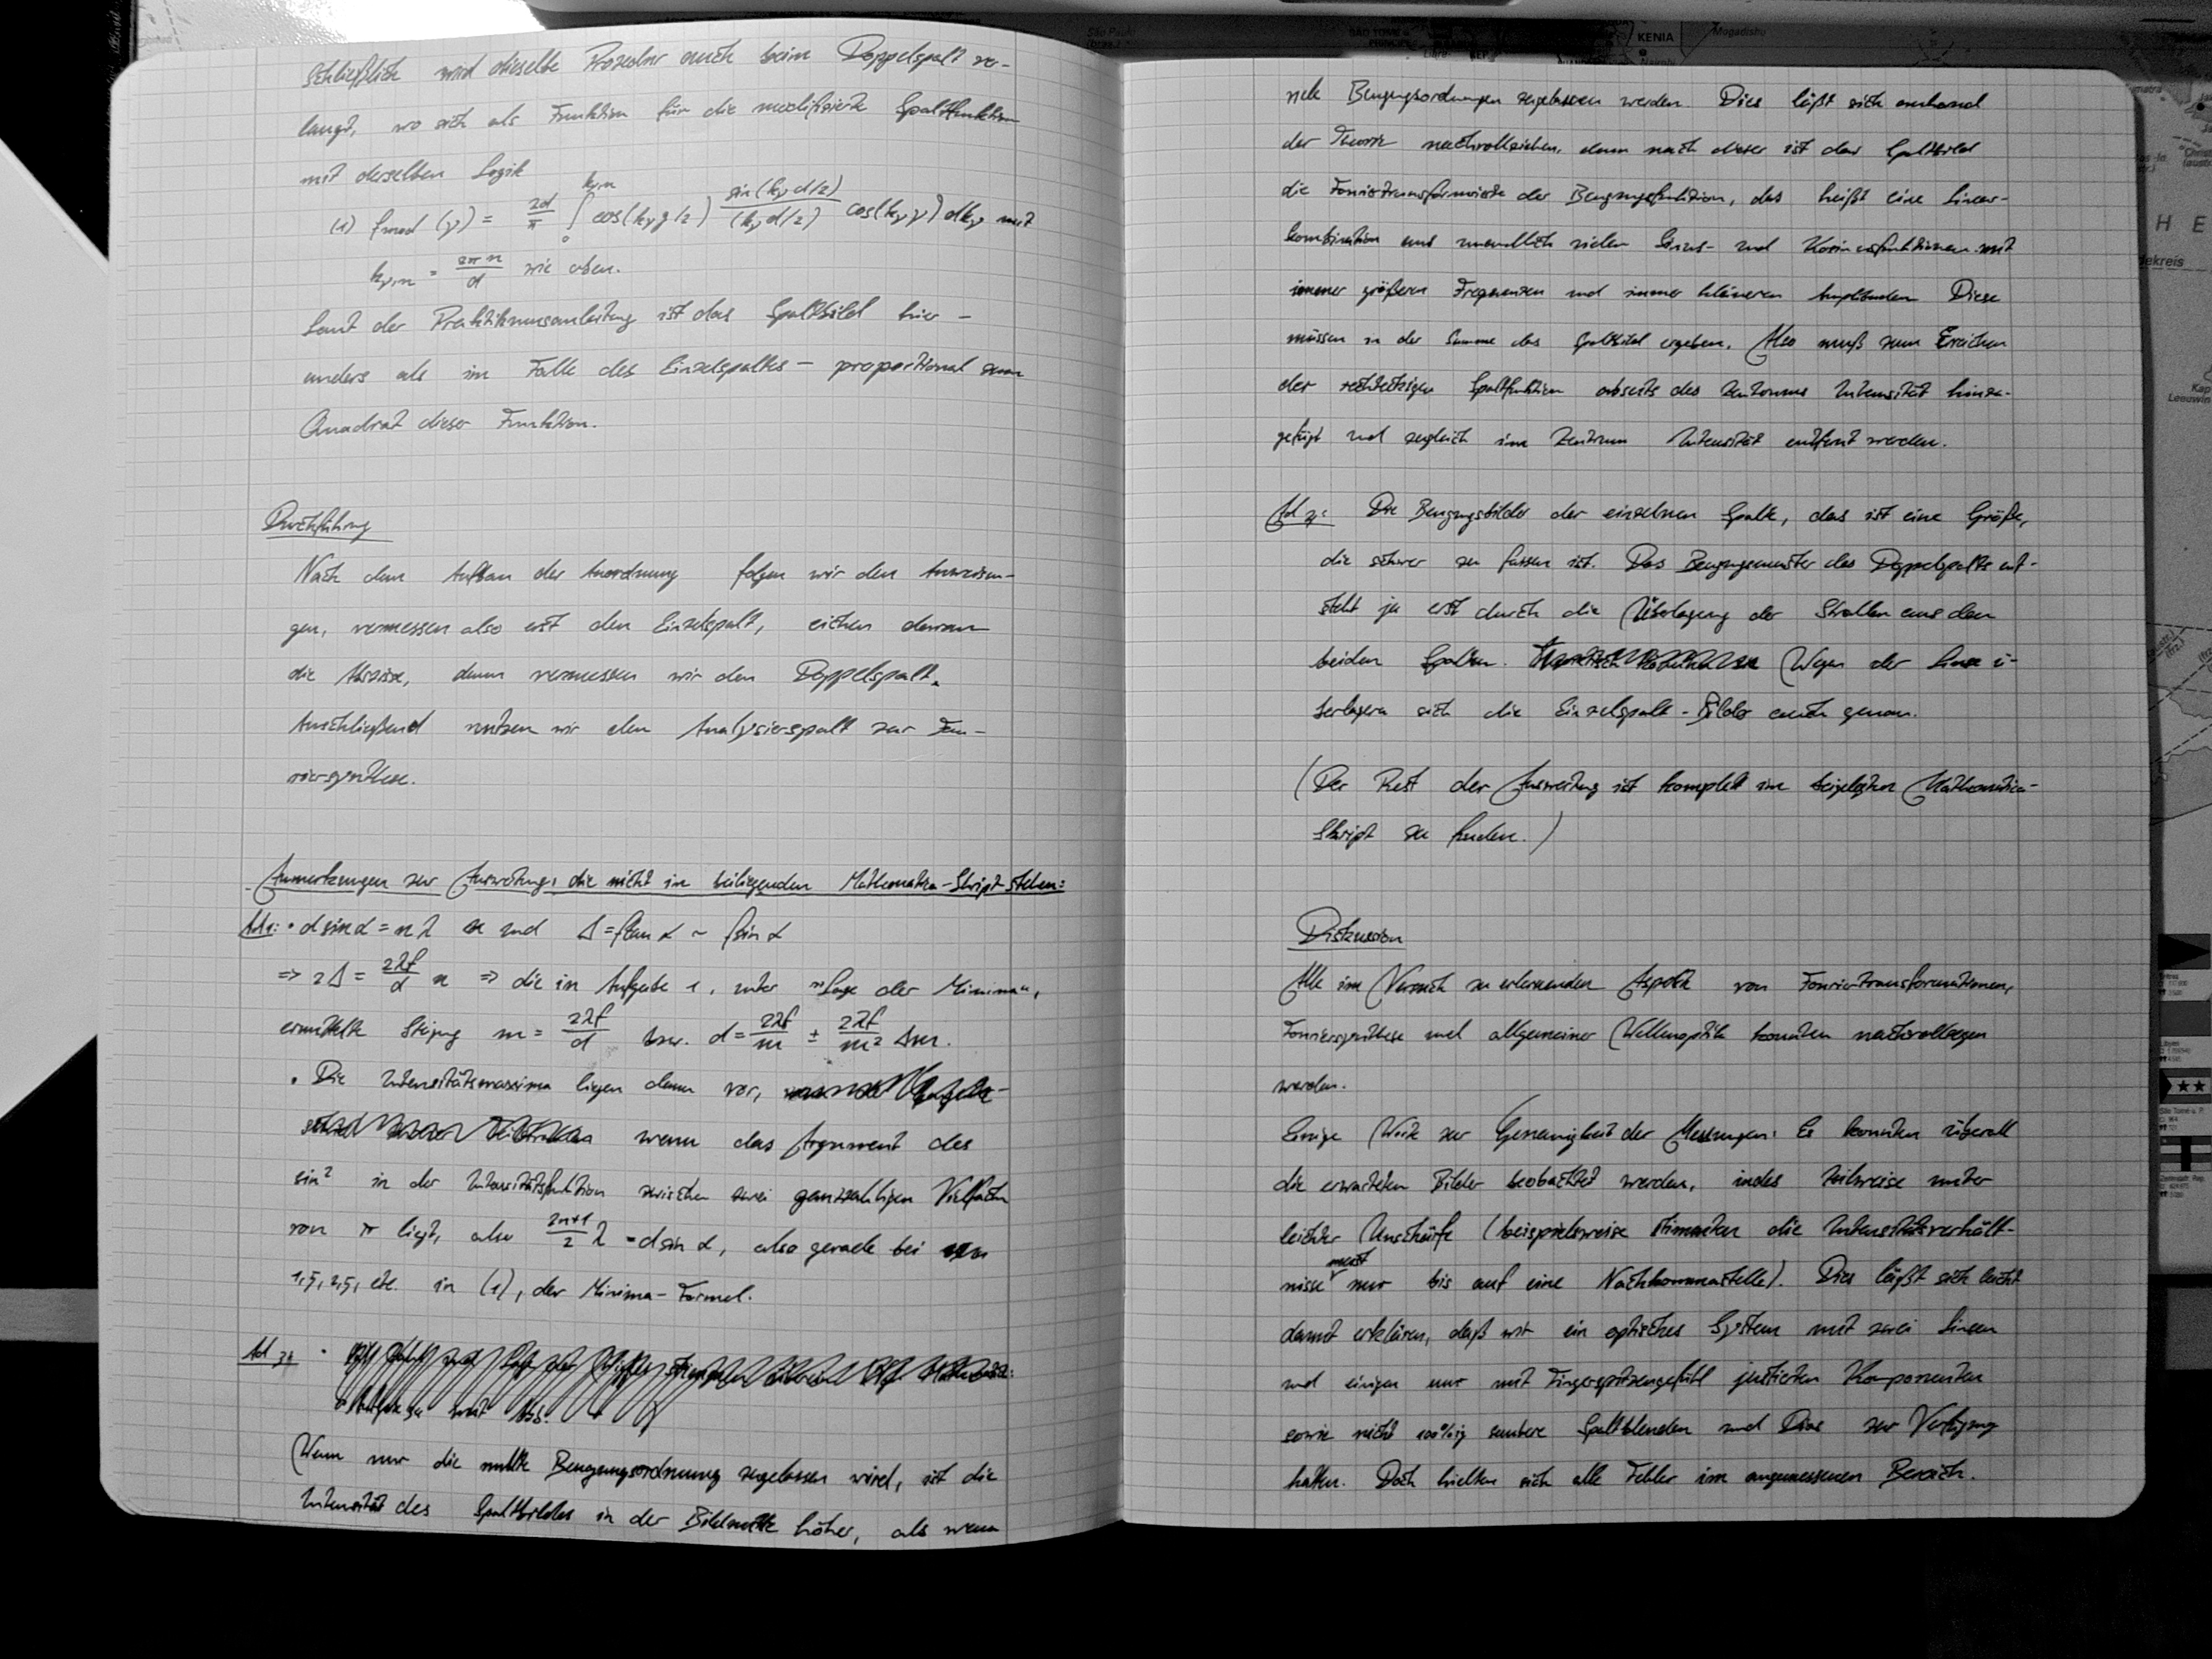 schließlich wird dieselbe Prozedur auch beim Doppelspalt ver-
langt, wo sich als Funktion für die modifizierte Spaltfunktion
mit derselben Logik
(1) f_mod (y) = 2d/π ∫_0^{k_ym} cos(k_y g/2) sin(k_y d/2)/(k_y d/2) cos(k_y y) dk_y mit
k_ym = 2π n/d wie oben.
Laut der Praktikumsanleitung ist das Spaltbild hier –
anders als im Falle des Einzelspaltes – proportional zum
Quadrat dieser Funktion.
Durchführung
Nach dem Aufbau der Anordnung folgen wir den Anweisun-
gen, vermessen also erst den Einzelspalt, eichen daran
die Abszisse, dann vermessen wir den Doppelspalt.
Anschließend nutzen wir den Analysierspalt zur Fou-
riersynthese.
Anmerkungen zur Auswertung, die nicht im beiliegenden Mathematica-Skript stehen:
Ad 1: • d sin α = n λ und Δ = f tan α ~ f sin α
=> 2Δ = 2λf/d n => die in Aufgabe 1, unter "Lage der Minima",
ermittelte Steigung m = 2λf/d bzw. d = 2λf/m ± 2λf/m² Δm.
• Die Intensitätsmaxima liegen dann vor,
wenn das Argument des
sin² in der Intensitätsfunktion zwischen zwei ganzzahligen Vielfachen
von π liegt, also 2n+1/2 λ = d sin α, also gerade bei n =
1,5, 2,5, etc. in (1), der Minima-Formel.
Ad 3:
Wenn nur die nullte Beugungsordnung zugelassen wird, ist die
Intensität des Spaltbildes in der Bildmitte höher, als wenn
viele Beugungsordnungen zugelassen werden. Dies läßt sich anhand
der Theorie nachvollziehen, denn nach dieser ist das Spaltbild
die Fouriertransformierte der Beugungsfunktion, das heißt eine Linear-
kombination aus unendlich vielen Sinus- und Kosinusfunktionen mit
immer größeren Frequenzen und immer kleineren Amplituden. Diese
müssen in der Summe das Spaltbild ergeben. Also muß zum Erreichen
der rechteckigen Spaltfunktion abseits des Zentrums Intensität hinzu-
gefügt und zugleich im Zentrum Intensität entfernt werden.
Die Beugungsbilder der einzelnen Spalte, das ist eine Größe,
die schwer zu fassen ist. Das Beugungsmuster des Doppelspalts ent-
steht ja erst durch die Überlagerung der Strahlen aus den
beiden Spalten. Wegen der Linse ü-
berlagern sich die Einzelspalt-Bilder auch genau.
(Der Rest der Auswertung ist komplett im beigelegten Mathematica-
Skript zu finden.)
Diskussion
Alle im Versuch zu erlernenden Aspekte von Fouriertransformationen,
Fouriersynthese und allgemeiner Wellenoptik konnten nachvollzogen
werden.
Einige Worte zur Genauigkeit der Messungen: Es konnten überall
die erwarteten Bilder beobachtet werden, indes teilweise unter
leichter Unschärfe (beispielsweise stimmten die Intensitätsverhält-
nisse meist nur bis auf eine Nachkommastelle). Dies läßt sich leicht
damit erklären, daß wir ein optisches System mit zwei Linsen
und einigen nur mit Fingerspitzengefühl justierten Komponenten
sowie nicht 100%ig saubere Spaltblenden und Dias zur Verfügung
hatten. Doch hielten sich alle Fehler im angemessenen Bereich.
KENIA
Mogadishu